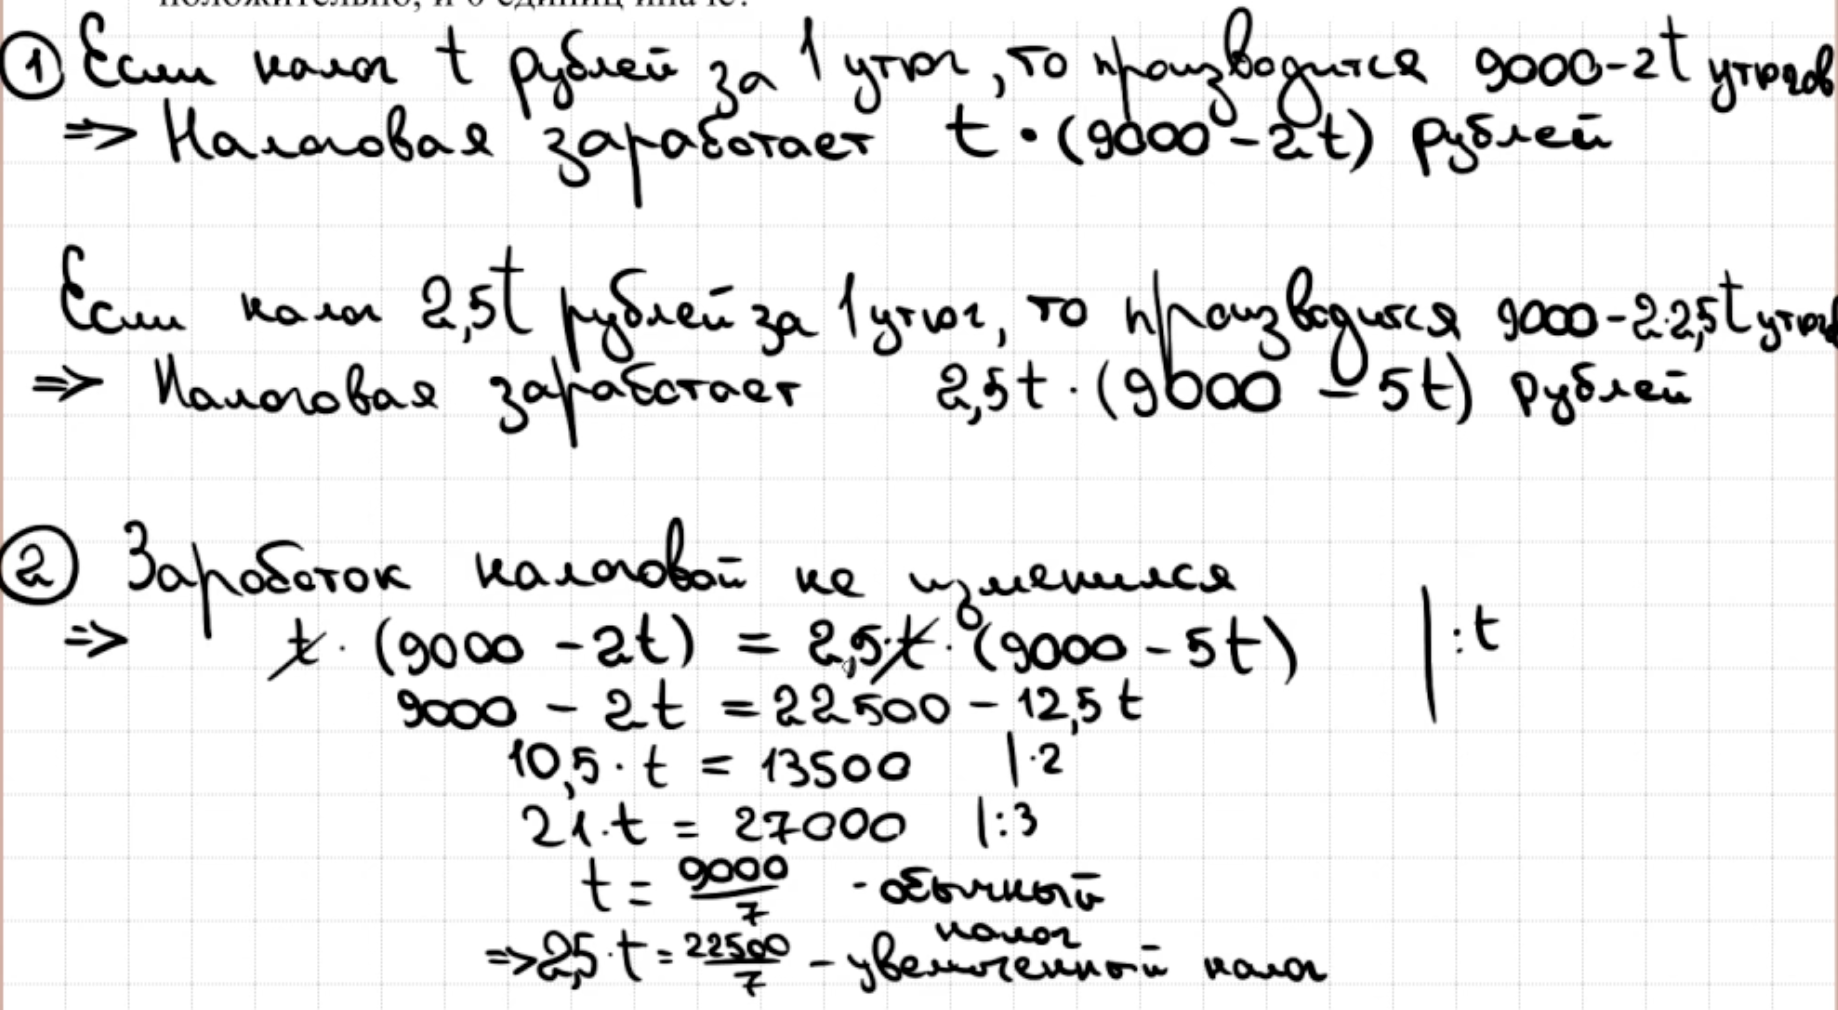 положительно, и 0 единиц иначе?
① Если налог t рублей за 1 утюг, то производится 9000-2t утюгов
=> Налоговая заработает t·(9000-2t) рублей
Если налог 2,5t рублей за 1 утюг, то производится 9000-2·2,5t утюгов
=> Налоговая заработает 2,5t·(9000-5t) рублей
② Заработок налоговой не изменился
=> t·(9000-2t) = 2,5·t·(9000-5t) |:t
9000 - 2t = 22500 - 12,5t
10,5·t = 13500 |·2
21·t = 27000 |:3
t = 9000/7 - обычный налог
=> 2,5·t = 22500/7 - увеличенный налог